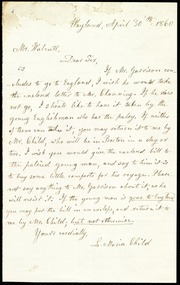 Wayland, April 30th 1860
Mr. Walcutt,
Dear Sir,
If Mr. Garrison con-
cludes to go to England, I wish he would take
the enclosed letter to Mr. Channing. If he does
not go, I should like to have it taken by the
young Englishman who has the palsy. If neither
of them can take it, you may return it to me by
Mr. Child, who will be in Boston in a day or
two. I wish you would give the enclosed bill to
the palsied young man, and say to him it is
to buy some little comforts for his voyage. Please
not say anything to Mr. Garrison about it; as he
will resist it. If the young man is gone to England
you may put the bill in an envelope, and return it to
me by Mr. Child; but not otherwise.
Yours cordially,
L. Maria Child